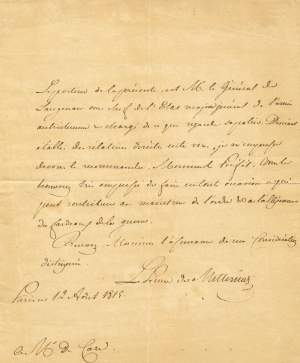 Le porteur de la présente est M. le Général de
sous chef de l'Etat major général de l'armée
autrichienne chargé de ce qui regarde sa police. Devant
établir des relations directes avec vous, je m'empresse
de vous le recommander Monsieur le Préfet,
très empressé de faire en toute occasion ce qui
peut contribuer au maintien de l'ordre et à
des fardeaux de la guerre.
Recevez Monsieur l'assurance de ma Considération
distinguée.
Le Prince de Metternich
Paris ce 12 Aout 1815
à Mr De